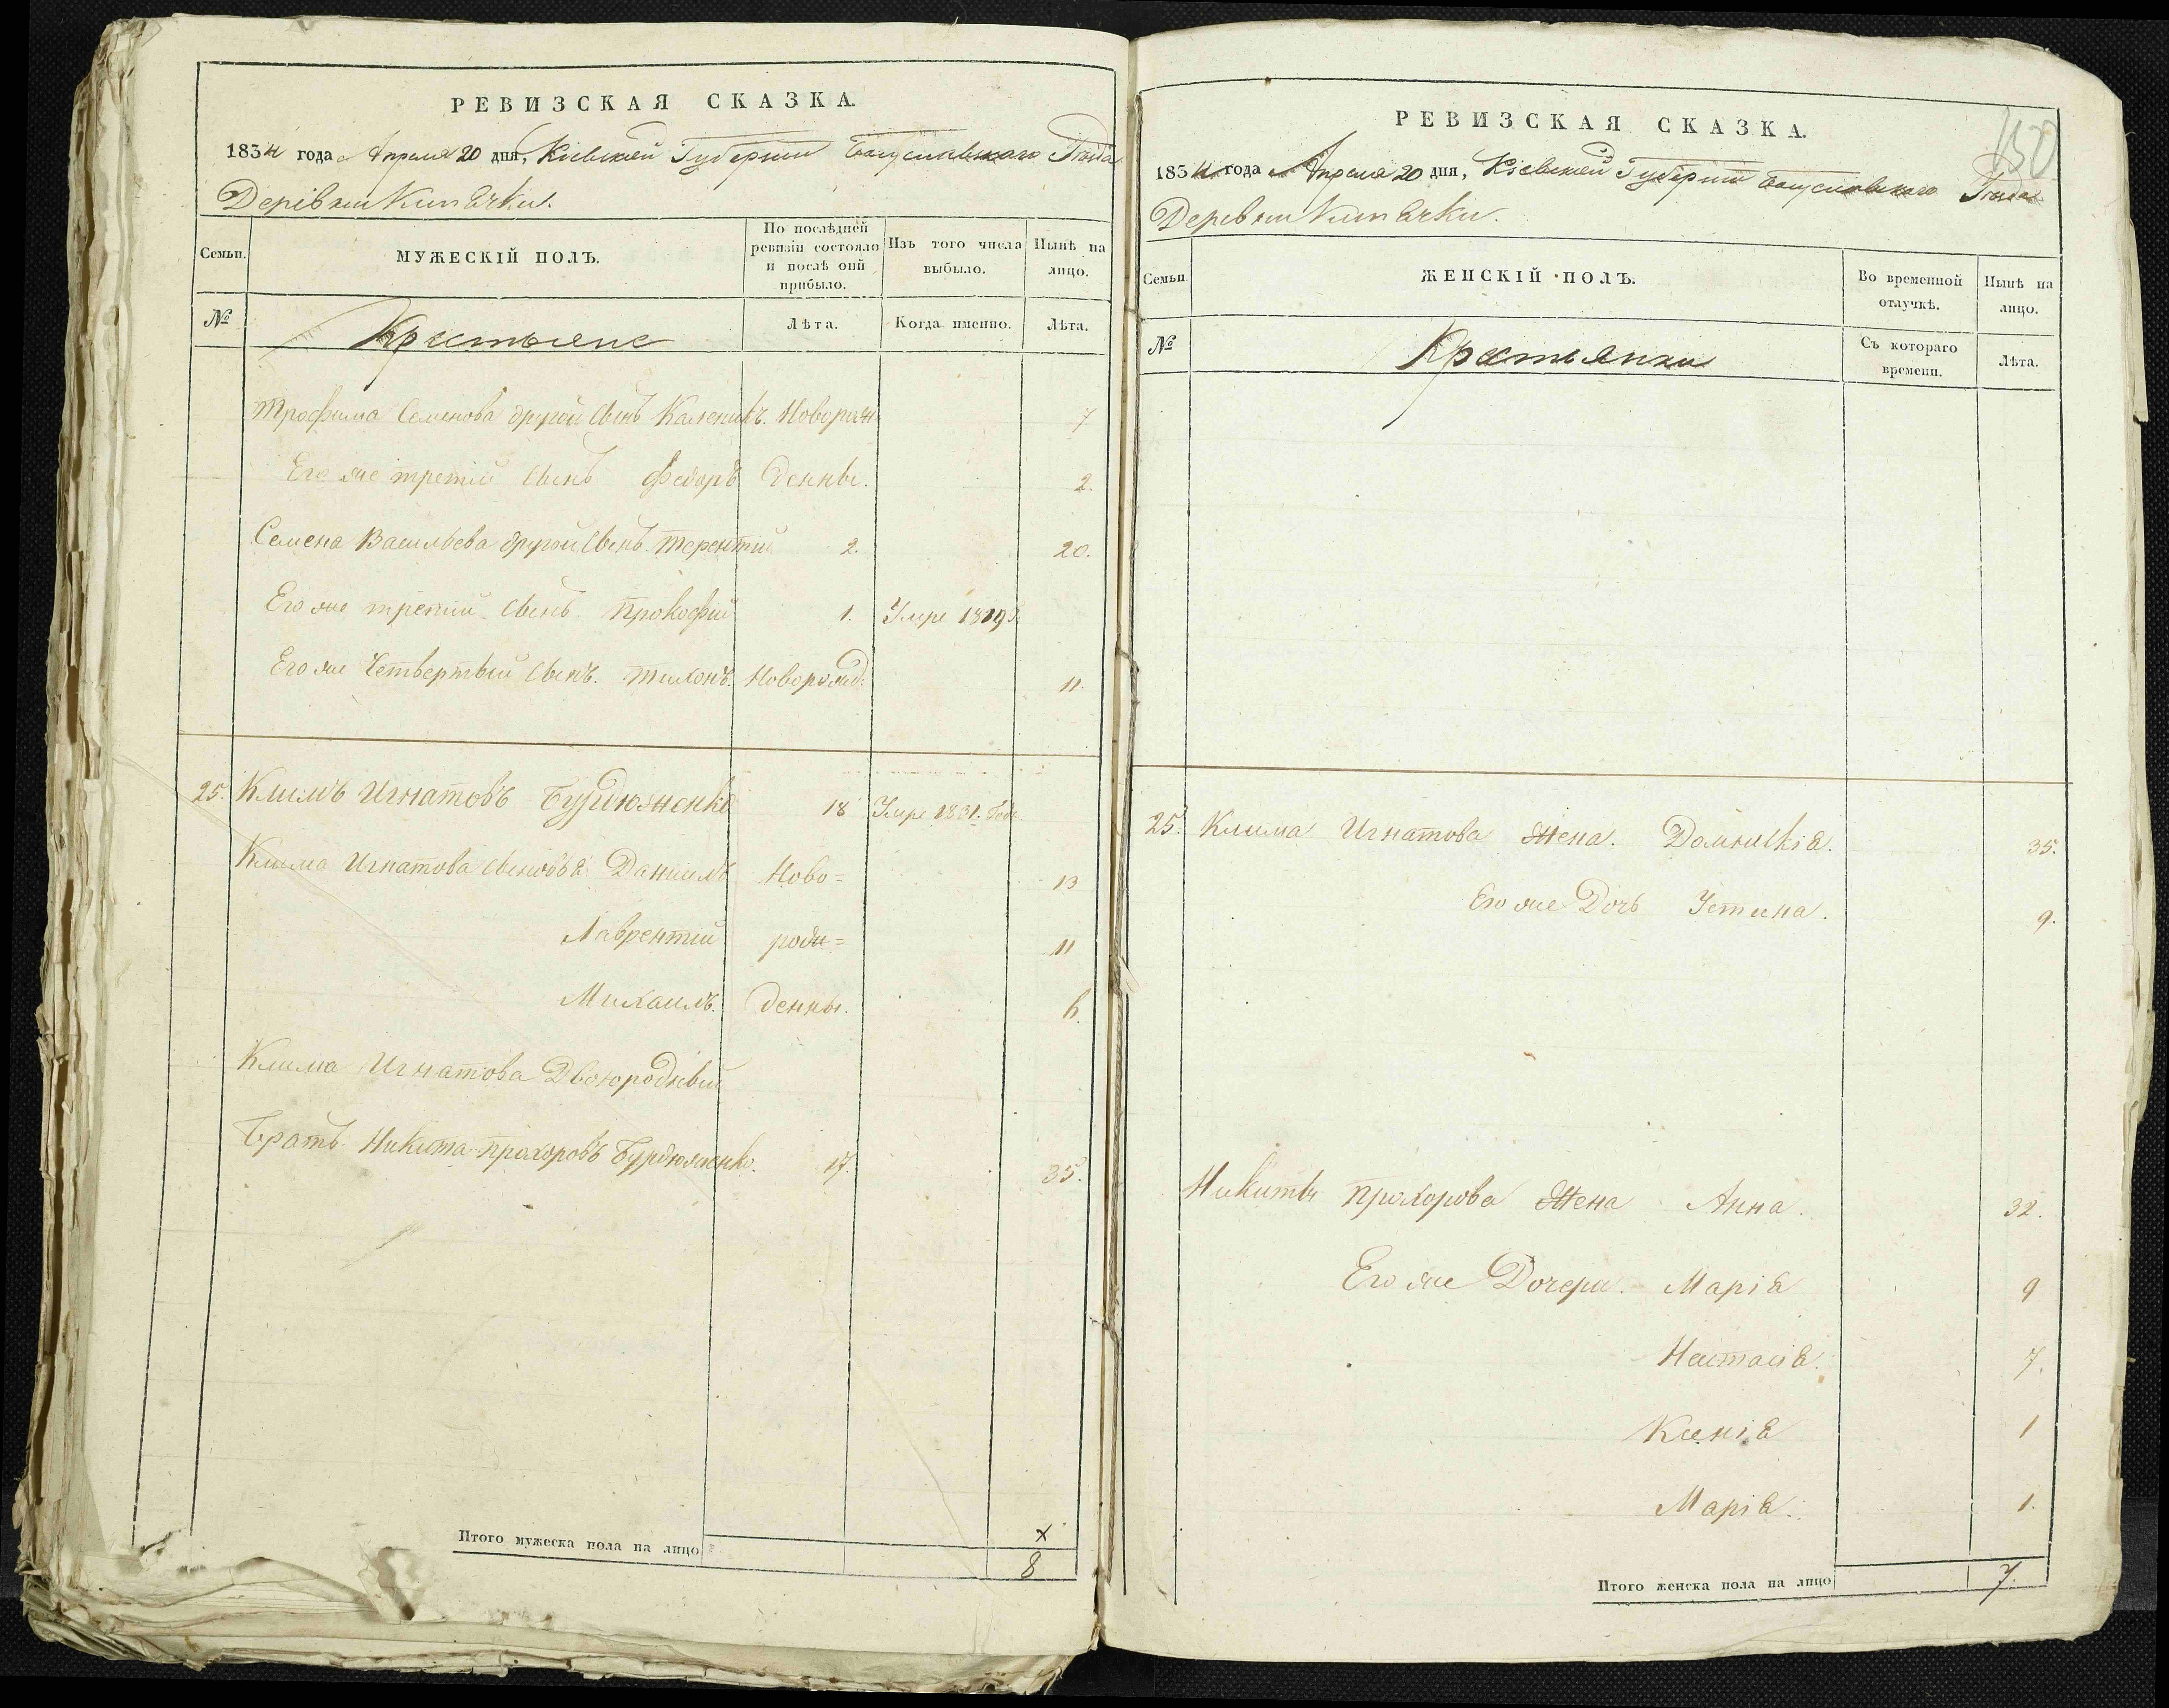 РЕВИЗСКАЯ СКАЗКА.
1834 года Апреля 20 дня, Кіевской Губерніи Богуславскаго Уезда
Деревни Кипячки.
Семьи.
МУЖЕСКІЙ ПОЛЪ.
По послѣдней ревизіи состояло и послѣ оной прибыло.
Изъ того числа выбыло.
Нынѣ на лицо.
№
Крестьяне
Лѣта.
Когда именно.
Лѣта.
Трофима Семенова другой сынъ Каленикъ. Новорож 7
Его же третій сынъ Федоръ денны. 2.
Семена Васильева другой сынъ Терентій 2. 20.
Его же третій сынъ Прокофій 1. Умре 1819
Его же Четвертый сынъ. Тихонъ. Новорожд: 11.
25. Климъ Игнатовъ Бурдюженко 18 Умре 1831. Года
Клима Игнатова сыновья Даниилъ Ново= 13
Лаврентій рож= 11
Михаилъ. денны. 6.
Клима Игнатова Двоюродный
Братъ Никита Прохоровъ Бурдюженко. 17. 35.
Итого мужеска пола на лицо
x
8
150
РЕВИЗСКАЯ СКАЗКА.
1834 года Апреля 20 дня, Кіевской Губерніи Богуславскаго Уезда
Деревни Кипячки.
Семьи.
ЖЕНСКІЙ ПОЛЪ.
Во временной отлучкѣ.
Нынѣ на лицо.
№
Крестьянки
Съ котораго времени.
Лѣта.
25. Клима Игнатова Жена. Домникія. 35.
Его же Дочь Устина. 9.
Никиты Прохорова Жена Анна. 32.
Его же Дочери. Марія 9
Настасія. 7.
Ксенія 1
Марія. 1.
Итого женска пола на лицо 7.